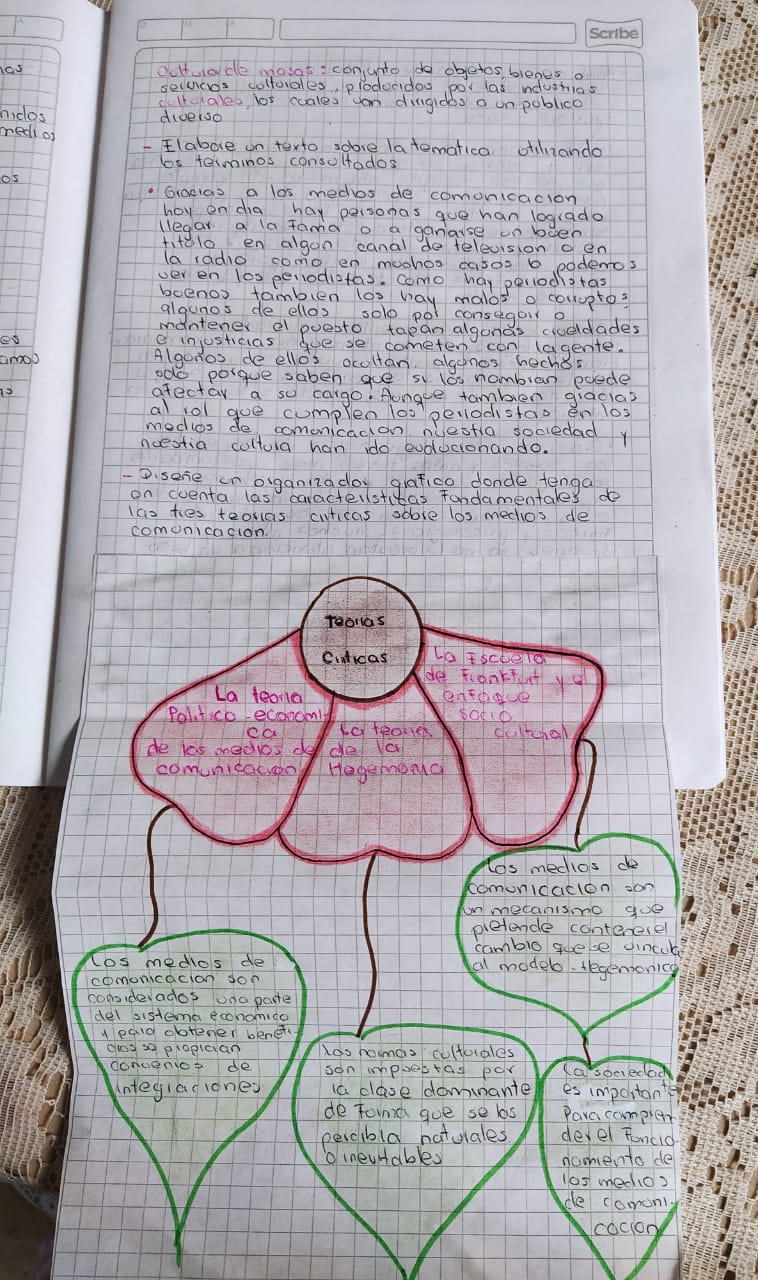 Scribe
Cultura de masas: conjunto de objetos, bienes o
servicios culturales, producidos por las industrias
culturales, los cuales van dirigidos a un público
diverso
- Elabore un texto sobre la temática utilizando
los terminos consultados
• Gracias a los medios de comunicacion
hoy en dia hay personas que han logrado
llegar a la fama o a ganarse un buen
titulo en algun canal de television o en
la radio como en muchos casos lo podemos
ver en los periodistas. Como hay periodistas
buenos tambien los hay malos o corruptos
algunos de ellos solo por conseguir o
mantener el puesto tapan algunas crueldades
e injusticias que se cometen con la gente.
Algunos de ellos ocultan algunos hechos
solo porque saben que si los nombran puede
afectar a su cargo. Aunque tambien gracias
al rol que cumplen los periodistas en los
medios de comunicacion nuestra sociedad y
nuestra cultura han ido evolucionando.
- Diseñe un organizador grafico donde tenga
en cuenta las caracteristicas fundamentales de
las tres teorias criticas sobre los medios de
comunicacion.
Teorias
Criticas
La teoria
Politico-economi
ca
de los medios de
comunicacion
La teoria
de la
Hegemonia
La Escuela
de Frankfurt y el
enfoque
socio
cultural
Los medios de
comunicacion son
considerados una parte
del sistema economico
y para obtener benefi-
cios se propician
convenios de
integraciones
Las normas culturales
son impuestas por
la clase dominante
de forma que se las
perciba naturales
o inevitables
Los medios de
comunicacion son
un mecanismo que
pretende contener el
cambio que se vincula
al modelo - Hegemonico
La sociedad
es importante
Para compren
der el Funcio-
namiento de
los medios
de comuni-
cacion
nidos
medios
os
es